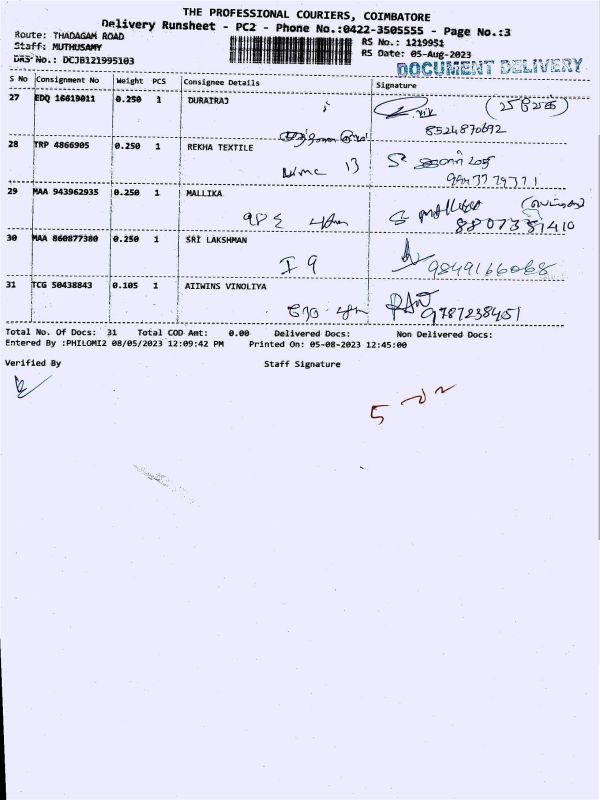 THE PROFESSIONAL COURIERS, COIMBATORE
Delivery Runsheet - PC2 - Phone No.:0422-3505555 - Page No.:3
Route: THADAGAM ROAD
RS No.: 1219951
Staff: MUTHUSAMY
RS Date: 05-Aug-2023
DRS No.: DCJB121995103
DOCUMENT DELIVERY
S No Consignment No Weight PCS Consignee Details Signature
27 EDQ 16619011 0.250 1 DURAIRAJ
8524870692
28 TRP 4866905 0.250 1 REKHA TEXTILE
13
29 MAA 943962935 0.250 1 MALLIKA
30 MAA 860877380 0.250 1 SRI LAKSHMAN
I 9 9849166068
31 TCG 50438843 0.105 1 AIIWINS VINOLIYA
9787238451
Total No. Of Docs: 31 Total COD Amt: 0.00 Delivered Docs: Non Delivered Docs:
Entered By :PHILOMI2 08/05/2023 12:09:42 PM Printed On: 05-08-2023 12:45:00
Verified By Staff Signature